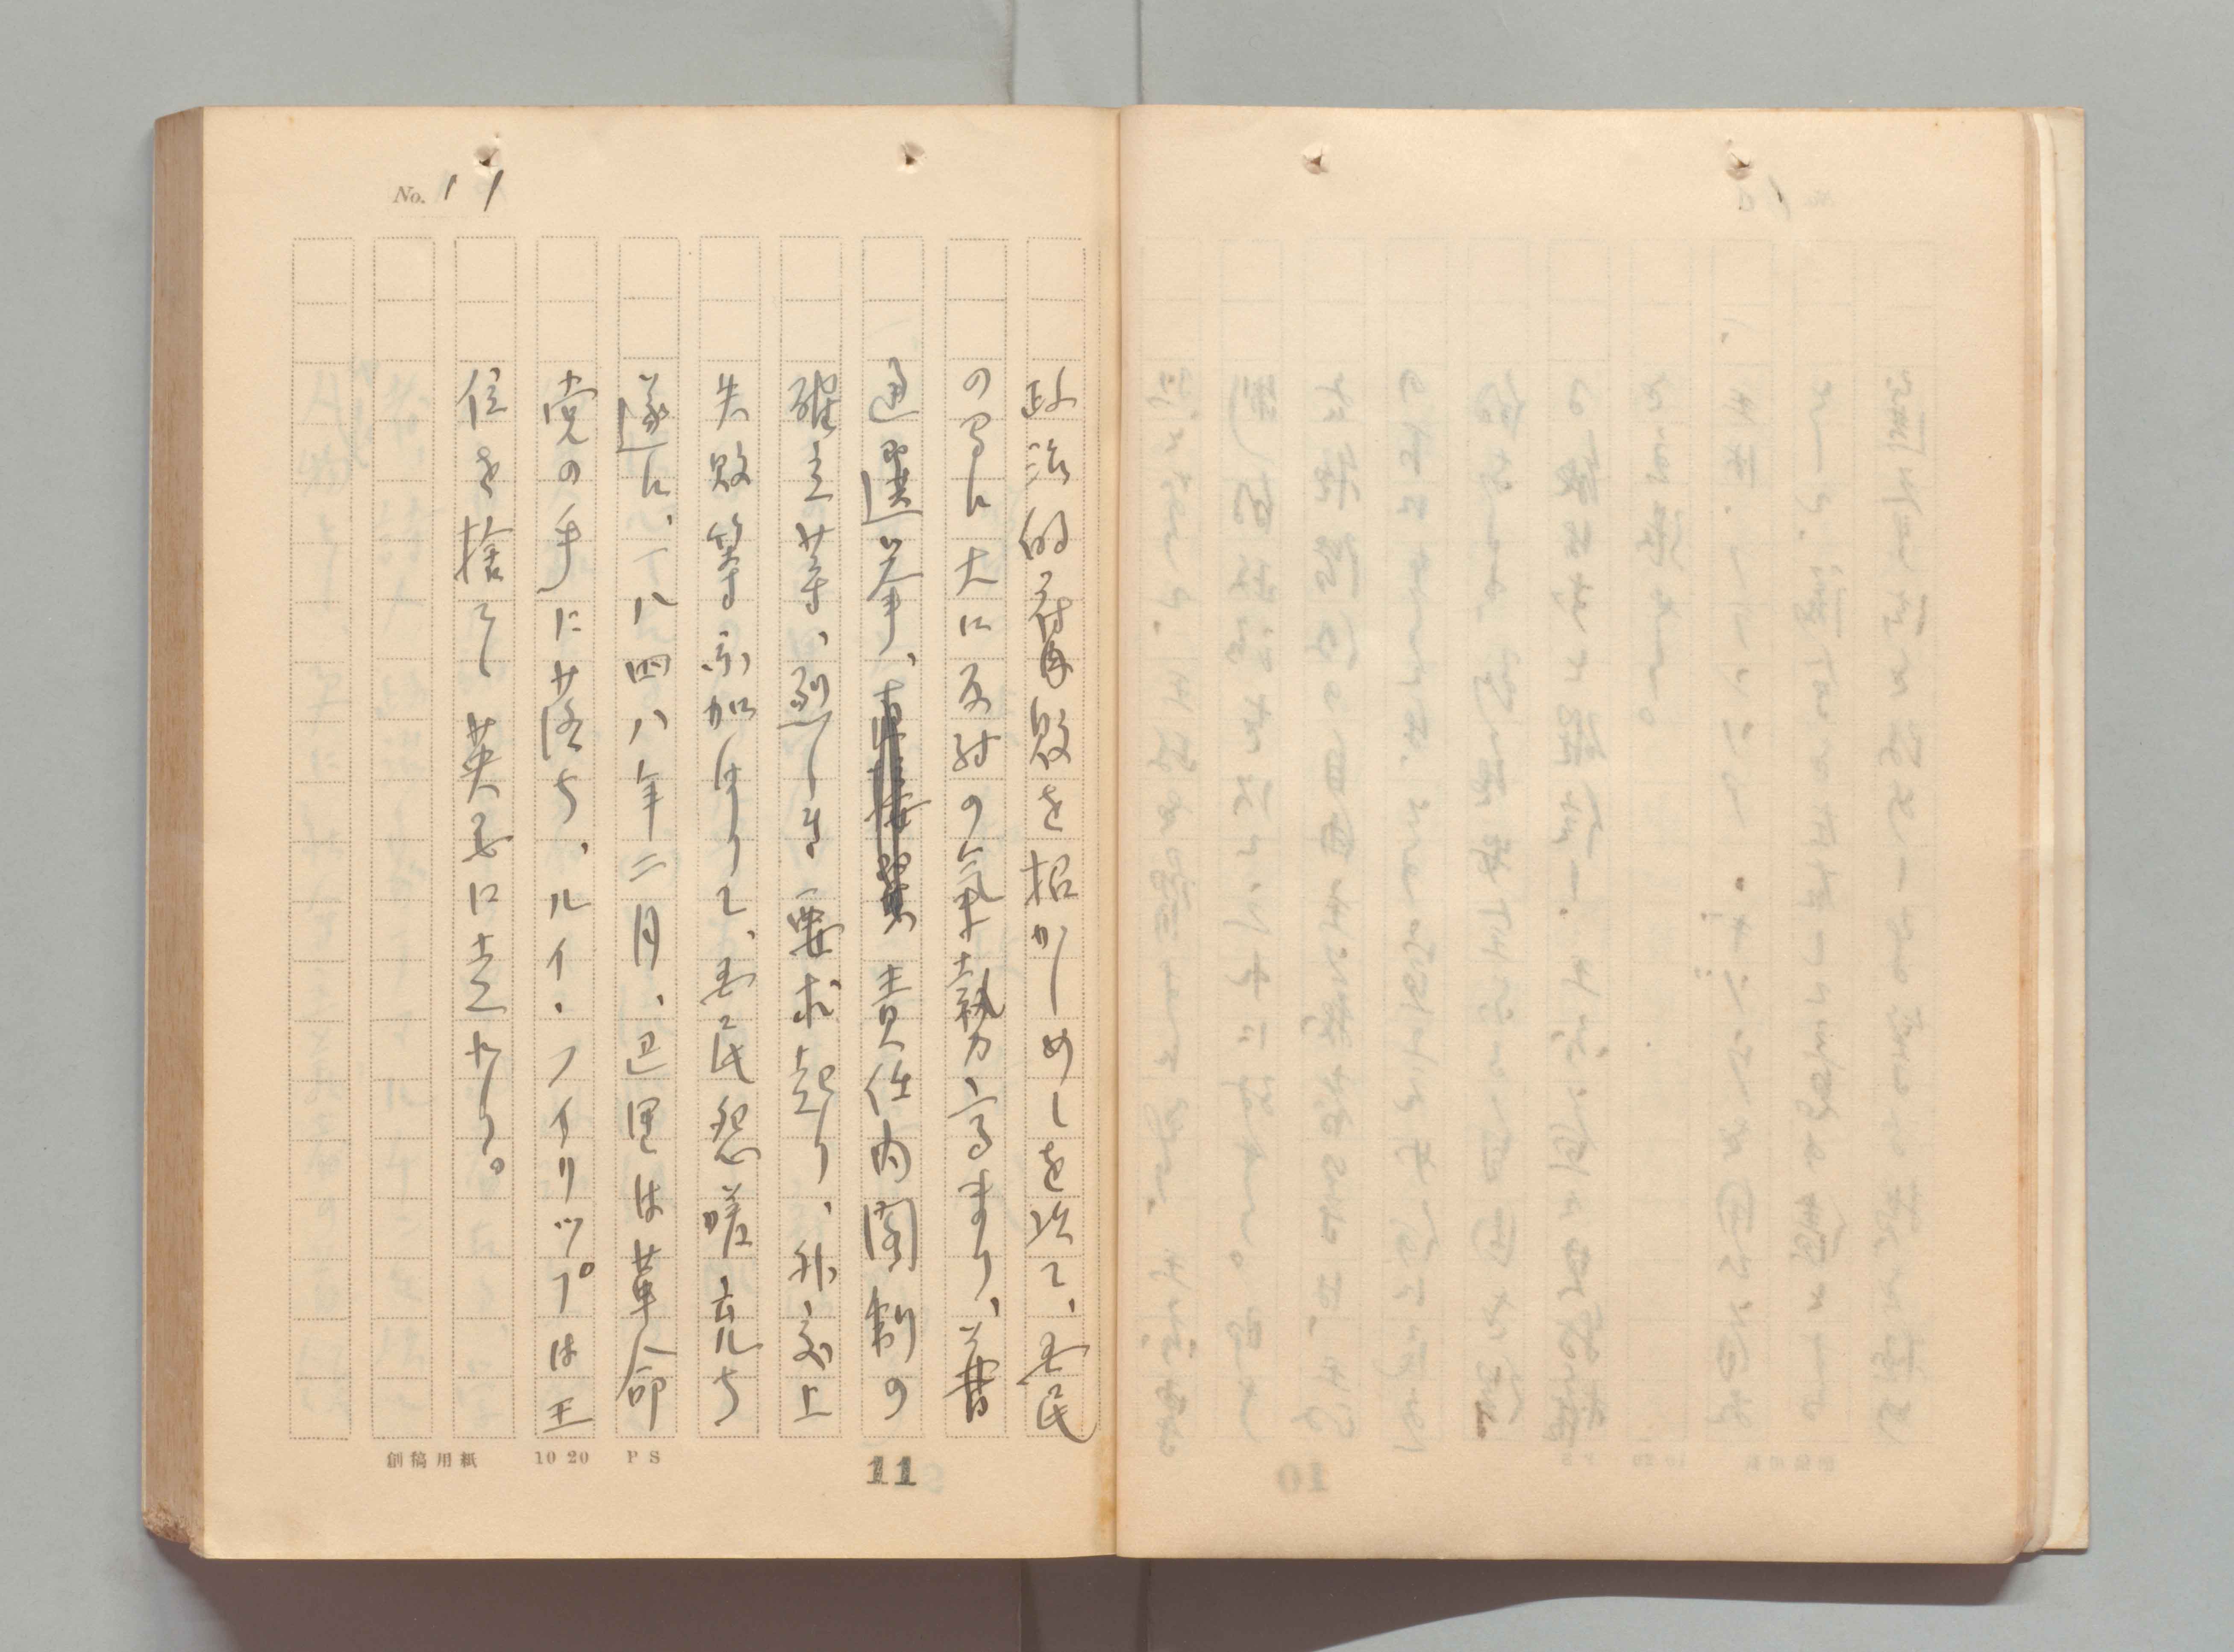 No. 11
政治的腐敗を招かしめしを以て、国民
の間に大に反対の氣勢高まり、普
通選挙、責任内閣制の
確立等、烈しき要求起り、外交上
失敗等亦加はりて、国民怨嗟充ち
遂に、一八四八年二月、巴里は革命
党の手に落ち、ルイ・フイリップは王
位を捨てて英国に走れり。
創稿用紙 10 20 P S
11